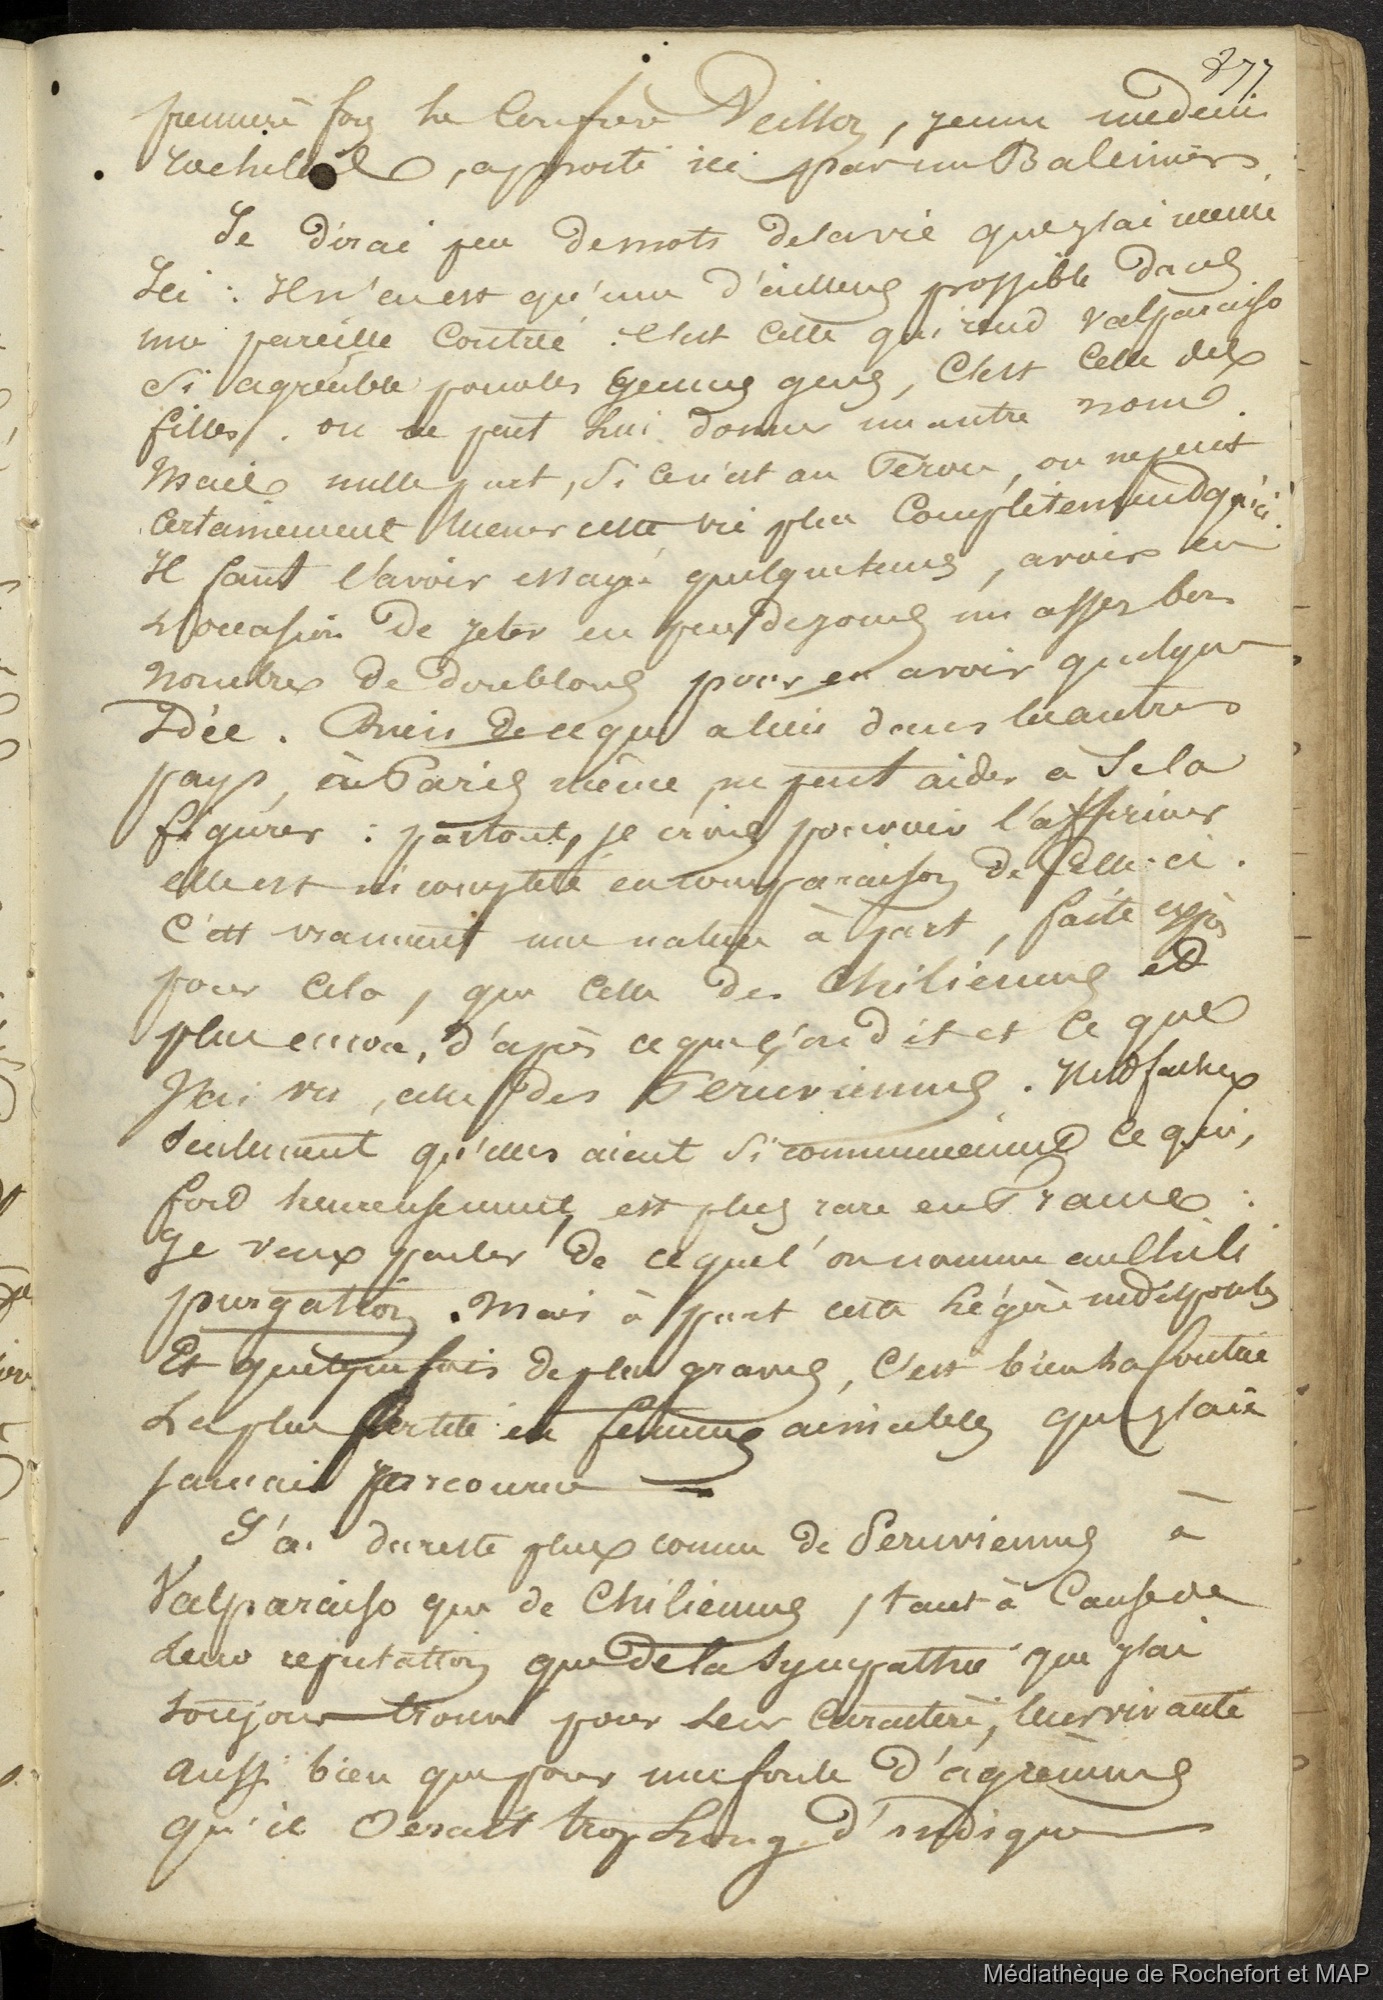 277
premiere fois le Confrere Veillon, jeune medecin
rochelais, apporté ici par un Baleinier
Je dirai peu de mots de la vie que j'ai menée
Ici : Il n'en est qu'une d'ailleurs possible dans
une pareille Contrée : C'est celle qui rend Valparaiso
Si agréable pour les Jeunes gens, C'est Celle des
filles. on ne peut lui donner un autre nom.
Mais nulle part, Si ce n'est au Perou, on ne peut
Certainement Mener cette vie plus Complètement qu'ici.
Il faut l'avoir essayé quelque tems, avoir eu
L'occasion de jeter en peu de jours un assez bon
Nombre de doublons pour en avoir quelque
Idée. Rien de ce qui a lieu dans les autres
pays, à Paris même, ne peut aider a Se la
figurer : partout, je crois pouvoir l'affirmer
elle est incomplete en comparaison de Celle-ci.
C'est vraiment une nature à part, faite exprès
pour Cela, que celle des Chiliennes et
plus encore, d'après ce que l'on dit et Ce que
J'ai vu, celle des Péruviennes. Il est facheux
Seulement qu'elles aient Si communement Ce qui,
fort heureusement, est plus rare en France :
Je veux parler de ce que l'on nomme au Chili
purgation. Mais à part cette Légère indisposit.
Et quelque fois de plus graves, C'est bien la Contrée
La plus fertile en femmes aimables que j'aie
Jamais parcourue
J'ai du reste plus connu de Peruviennes à
Valparaiso que de Chiliennes, tant à Cause de
Leur reputation que de la Sympathie que j'ai
toujours trouvé pour Leur Caractere, leur vivacité
aussi bien que pour une foule d'agrèmens
qu'il Serait trop Long d'indiquer
Médiathèque de Rochefort et MAP